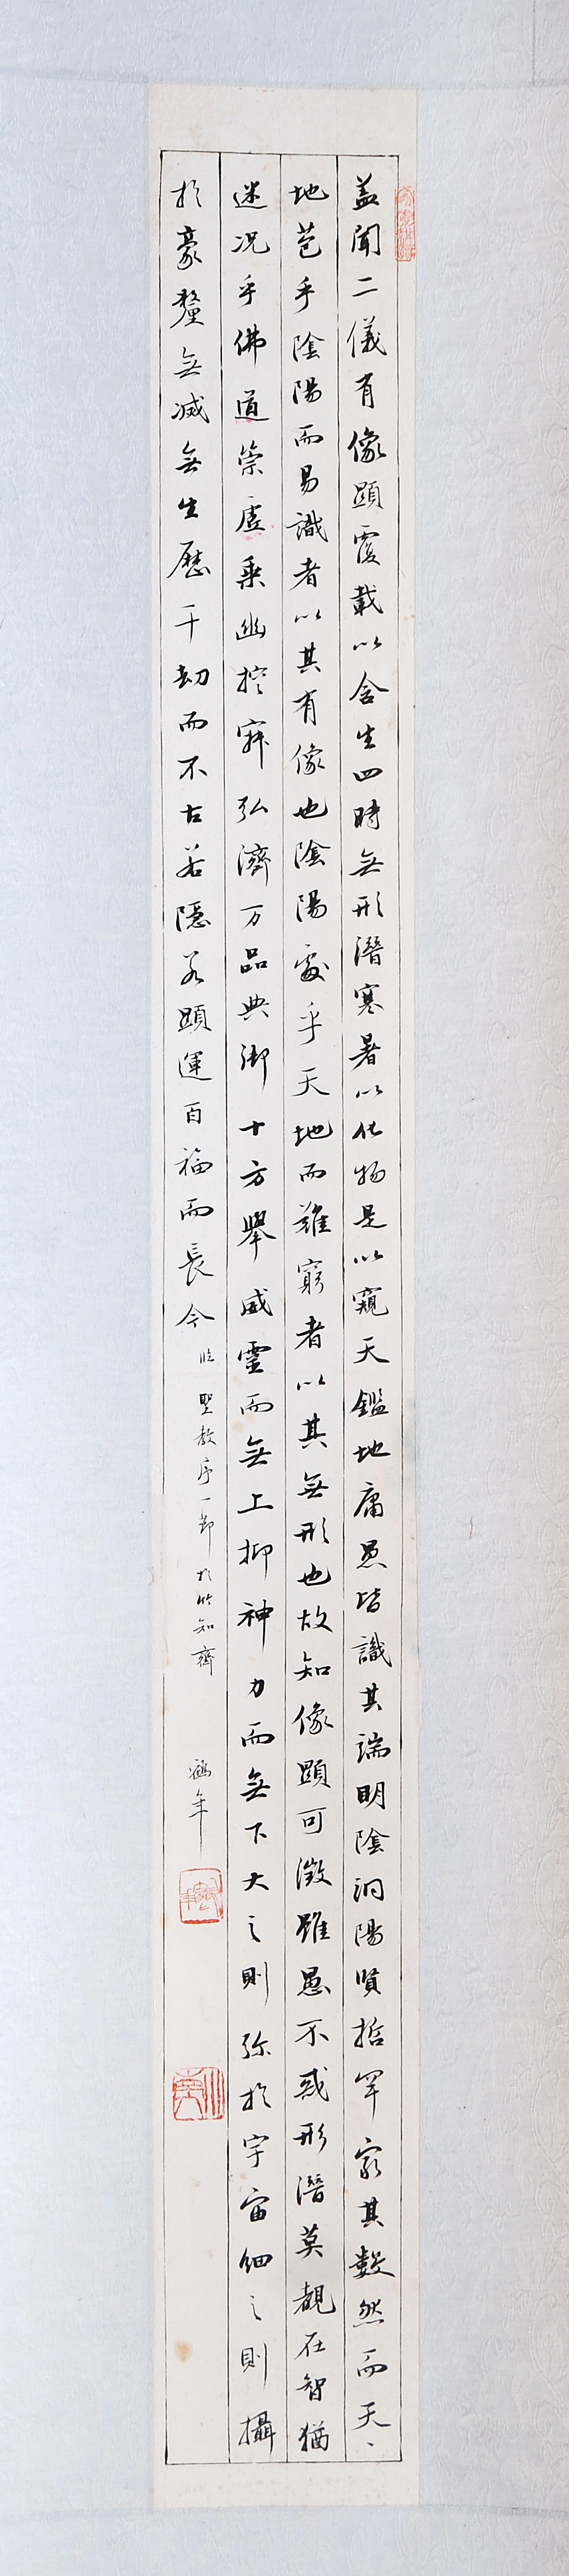 盖聞二儀有像顯覆載以含生四時無形潛寒暑以化物是以窺天鑑地庸愚皆識其端明陰洞陽賢哲罕窮其數然而天、
地苞乎陰陽而易識者以其有像也陰陽處乎天地而難窮者以其無形也故知像顯可徵雖愚不惑形潛莫覩在智猶
迷况乎佛道崇虛乘幽控寂弘濟万品典御十方舉威靈而無上抑神力而無下大之則弥於宇宙細之則攝
於豪釐無滅無生歷千劫而不古若隱若顯運百福而長今
臨聖教序一節於竹知齋
鶴年